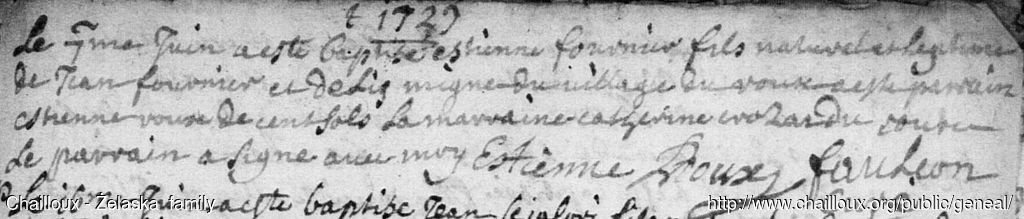 t 1729
Le 7me Juin a este baptise estienne fournier fils naturel et legitime
de Jean fournier et de Lis migne du village du roux a este parrain
estienne roux de cent sols La marraine catherine crozat du roux
Le parrain a signe avec moy Estienne Roux fauleon
Juin a este baptise Jean
Chailloux - Zelaska family
http://www.chailloux.org/public/geneal/